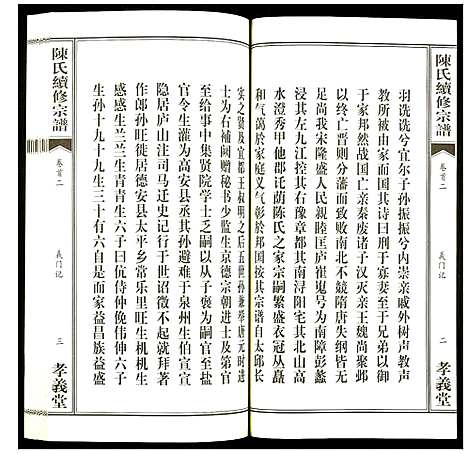 陳氏續修宗譜
卷首二
義门记
二
孝義堂
羽诜诜兮宜尔子孙振振兮内崇亲戚外树声教声
教所被由家而国其诗曰刑于寡妻至于兄弟以御
于家邦然战国亡亲秦废诸子汉灭亲王魏尚聚邺
以终亡晋则分藩而致败南北不競隋唐失纲皆不
足尚我未隆盛人民親睦匡庐崔嵬号为南障彭蠡
浸其左九江控其右豫章都其南浔阳宅其北山高
水澄秀甲他郡迁荫陈氏之家宗嗣繁盛衣冠丛矗
和气蔼於家庭义气彰於邦国按其宗谱自太邱长
实之贤及宜都王叔明之后五世孙兼举唐元时进
士为右補阙赠秘书少监生京德宗朝进士及第官
至给事中集贤院学士乏嗣以从子褒为嗣官至盐
官令生灌为高安县丞其孙避难于泉州生伯宣
隐居庐山注司马迁记行于世诏徵不起就拜
作郎孙旺徙居德安县太平乡常乐里旺生机机生
感感生兰兰生青青生六子曰伉侍仲俛伟伸六子
生孙十九十九生三十有六自是而家益昌族益盛
陳氏續修宗譜
卷首二
義门记
三
孝義堂